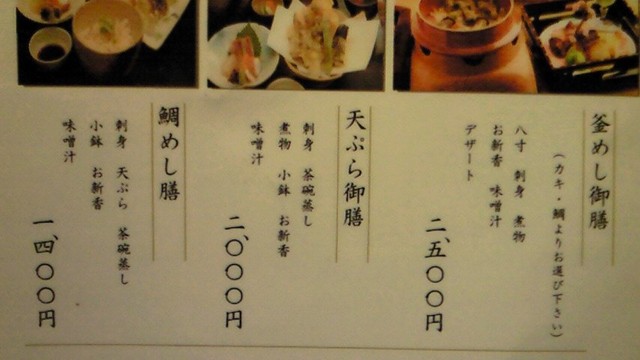 釜めし御膳
(カキ・鯛よりお選び下さい)
八寸 刺身 煮物
お新香 味噌汁
デザート
二、五〇〇円
天ぷら御膳
刺身 茶碗蒸し
煮物 小鉢 お新香
味噌汁
二、〇〇〇円
鯛めし膳
刺身 天ぷら 茶碗蒸し
小鉢 お新香
味噌汁
一、四〇〇円